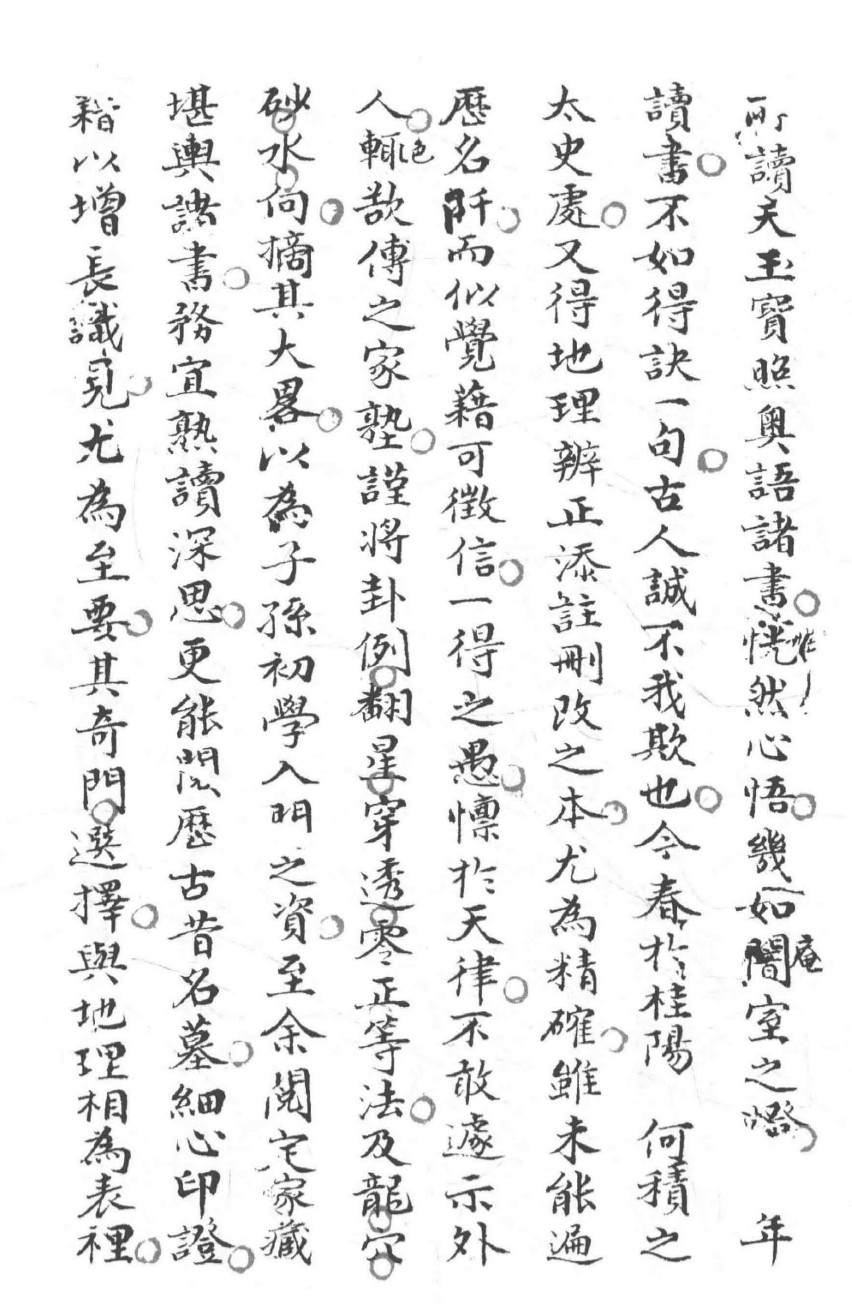 所讀天玉寶照奥語諸書恍然心悟幾如闇室之燈 年
讀書不如得訣一句古人誠不我欺也今春於桂陽 何積之
太史處又得地理辨正添註刪改之本尤為精確雖未能遍
歷名阡而似覺藉可徵信一得之愚懔於天律不敢遽示外
人輒敢傳之家塾謹將卦例翻星穿透零正等法及龍穴
砂水向摘其大畧以為子孫初學入門之資至余閲定家藏
堪輿諸書務宜熟讀深思更能閲歷古昔名墓細心印證
藉以增長識見尤為至要其奇門選擇與地理相為表裡